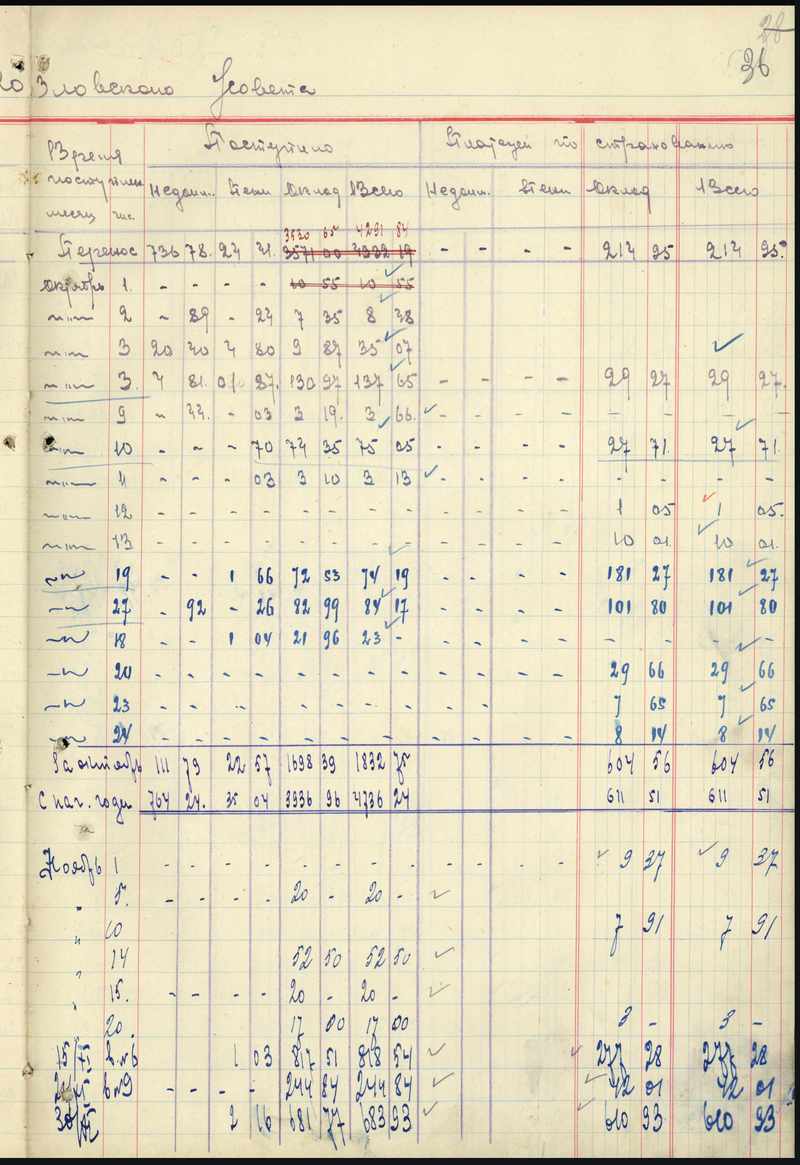 28
36
Зловского Усовета
Время Поступило Платежей по страхованию
поступлен. Недоим. Пени Оклад Всего Недоим. Пени Оклад Всего
месяц чис.
3530 65 4291 84
Перенос 736 78. 24 41. 3571 00 4332 19 - - - - 214 95 214 95.
Октябрь 1. - - - - 10 55 10 55
-"- 2 - 89 - 24 7 35 8 38
-"- 3 20 40 4 80 9 87 35 07
-"- 3. 4 81. 87. 130 97 137 65 - - - - 29 27 29 27.
-"- 9 - 44. - 03 3 19. 3 66. - - - - - - - -
-"- 10 - - - 70 74 35 75 05 - - - - 27 71. 27 71.
-"- 11 - - - 03 3 10 3 13 - - - - - - - -
-"- 12 - - - - - - - - - - - - 1 05 1 05.
-"- 13 - - - - - - - - - - - - 10 01. 10 01.
-"- 19 - - 1 66 72 53 74 19 - - - - 181 27 181 27
-"- 27 - 92 - 26 82 99 84 17 - - - - 101 80 101 80
-"- 18 - - 1 04 21 96 23 - - - - - - - - -
-"- 20 - - - - - - - - - - - - 29 66 29 66
-"- 23 - - - - - - - - - - 7 65 7 65
-"- 24 - - - - - - - - - - - - 8 14 8 14
За октябрь 111 79 22 57 1698 39 1832 75 604 56 604 56
С нач. года 764 24. 35 04 3936 96 4736 24 611 51 611 51
Ноябрь 1 - - - - - - - - - - - - 9 37 9 37
" 5. - - - - 20 - 20 -
" 10 7 91 7 91
" 14 52 50 52 50
" 15. - - - - 20 - 20 -
20. 17 00 17 00 3 - 3 -
15/ 1 03 817 51 818 54 277 28 277 28
- - - - 244 84 244 84 42 01 42 01
30/ 2 16 681 77 683 93 610 93 610 93